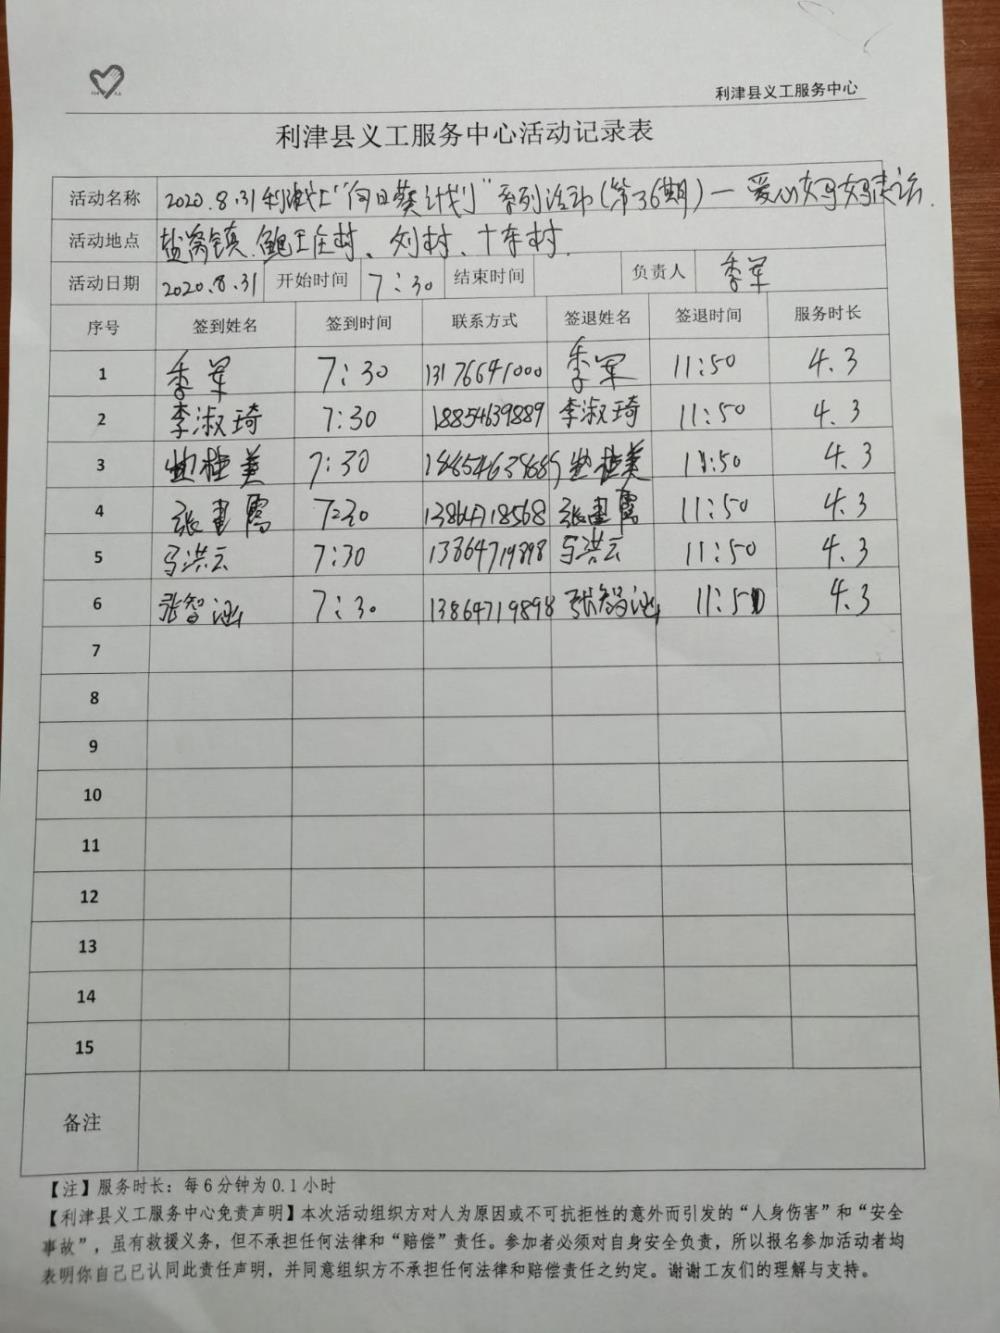 利津县义工服务中心
利津县义工服务中心活动记录表
活动名称 2020.8.31利津义工"向日葵计划"系列活动(第36期)—爱心妈妈走访.
活动地点 盐窝镇、鲍王庄村、刘村、十车村.
活动日期 2020.8.31 开始时间 7:30 结束时间 负责人 季军
序号 签到姓名 签到时间 联系方式 签退姓名 签退时间 服务时长
1 季军 7:30 13176641000 季军 11:50 4.3
2 李淑琦 7:30 18854639889 李淑琦 11:50 4.3
3 7:30 11:50 4.3
4 7:30 13864718568 11:50 4.3
5 马洪云 7:30 13864719898 马洪云 11:50 4.3
6 张智涵 7:30 13864719898 张智涵 11:50 4.3
7
8
9
10
11
12
13
14
15
备注
【注】服务时长：每6分钟为0.1小时
【利津县义工服务中心免责声明】本次活动组织方对人为原因或不可抗拒性的意外而引发的“人身伤害”和“安全
事故”，虽有救援义务，但不承担任何法律和“赔偿”责任。参加者必须对自身安全负责，所以报名参加活动者均
表明你自己已认同此责任声明，并同意组织方不承担任何法律和赔偿责任之约定。谢谢工友们的理解与支持。